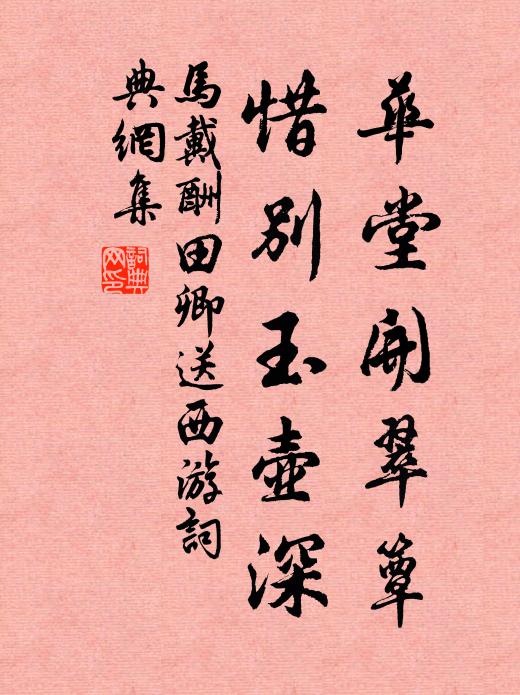 華堂開翠簟
惜別玉壺深
馬戴酬田卿送西游詞
典網集
詞典网印